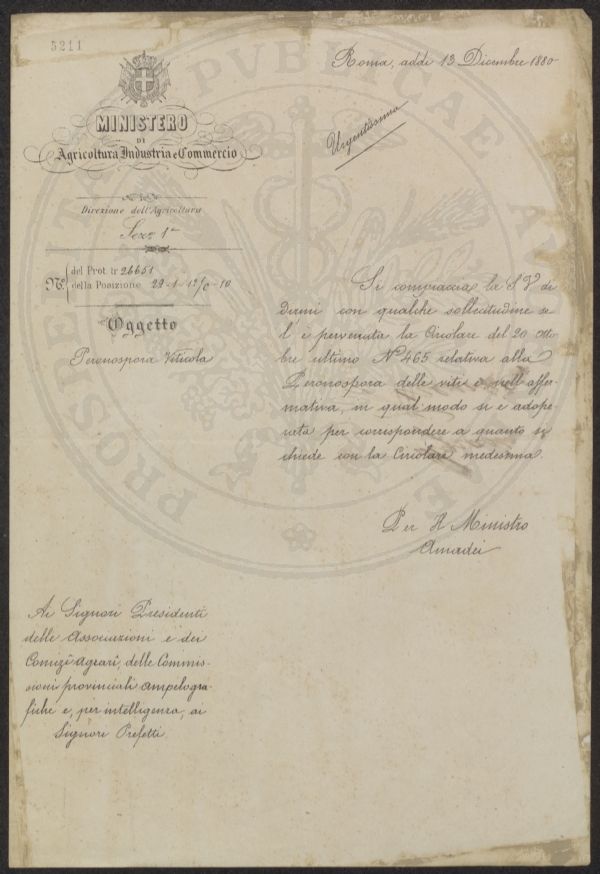 5211
Roma, addì 13 Dicembre 1880
Urgentissima
MINISTERO
DI
Agricoltura Industria e Commercio
Direzione dell'Agricoltura
Sezne 1ª
Nº. del Prot. tr 26651
della Posizione 29-1-12/c-10
Oggetto
Peronospora Viticola
Si compiaccia la S V di
dirmi con qualche sollecitudine se
l'è pervenuta la Circolare del 20 otto
bre ultimo Nº 465 relativa alla
Peronospora delle viti e nell'affer-
mativa, in qual modo si è adope
rata per corrispondere a quanto si
chiede con la Circolare medesima.
Per Il Ministro
Amadei
Ai Signori Presidenti
delle Associazioni e dei
Comizî Agrarî, delle Commis-
sioni provinciali ampelogra-
fiche e, per intelligenza, ai
Signori Prefetti.
PROSPERITATI PVBLICAE AV